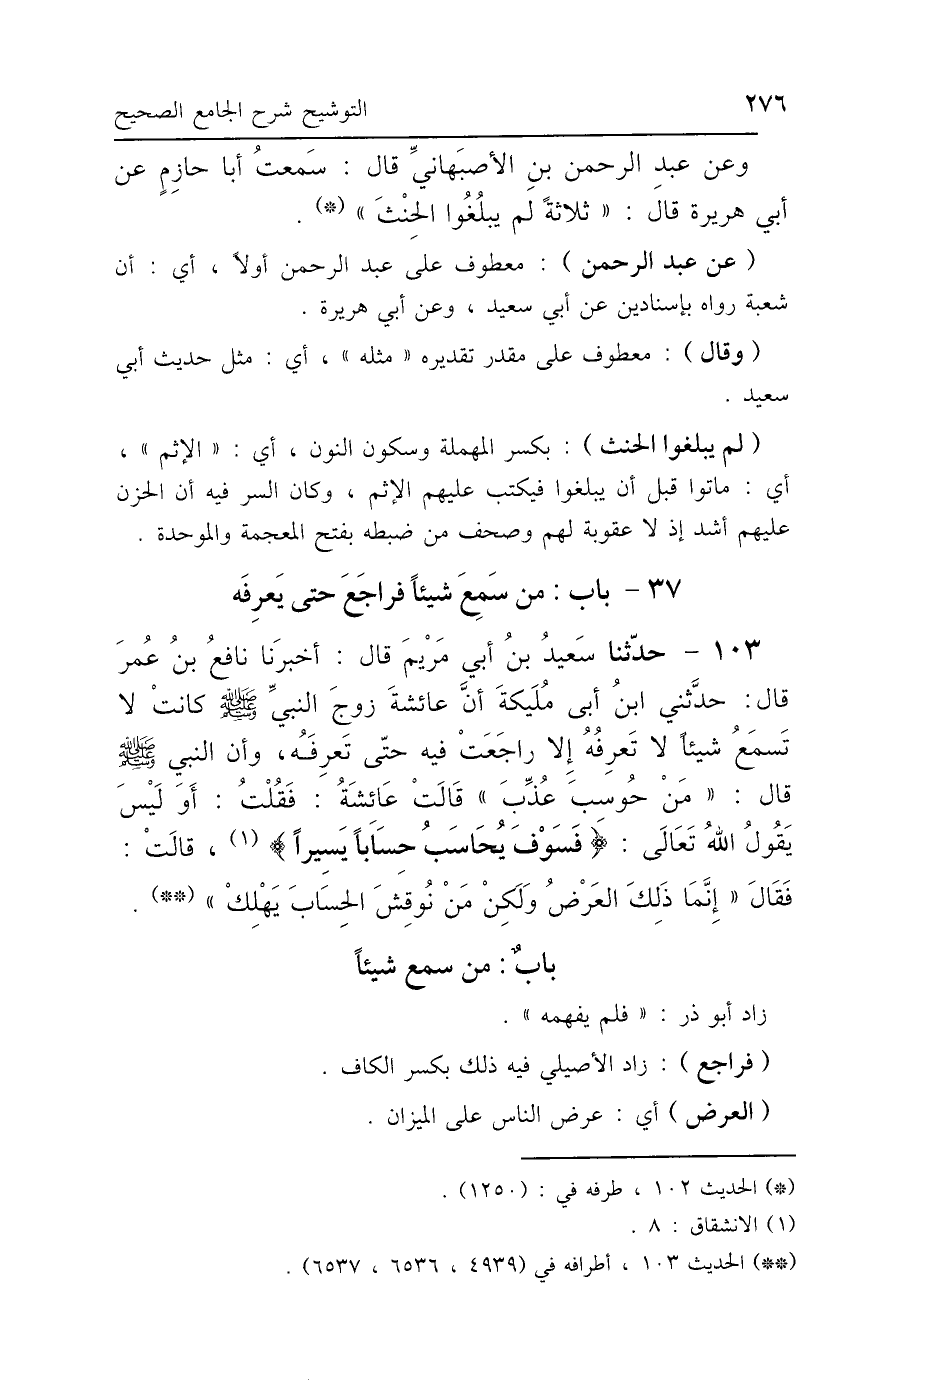 ٢٧٦
التوشيح شرح الجامع الصحيح
وعن عبدِ الرحمن بنِ الأصبَهانيِّ قال : سَمعتُ أبا حازِمٍ عن
أبي هريرة قال : « ثلاثةً لَم يبلُغُوا الحِنْثَ » (*) .
( عن عبد الرحمن ) : معطوف على عبد الرحمن أولاً ، أي : أن
شعبة رواه بإسنادين عن أبي سعيد ، وعن أبي هريرة .
( وقال ) : معطوف على مقدر تقديره « مثله » ، أي : مثل حديث أبي
سعيد .
( لم يبلغوا الحنث ) : بكسر المهملة وسكون النون ، أي : « الإثم » ،
أي : ماتوا قبل أن يبلغوا فيكتب عليهم الإثم ، وكان السر فيه أن الحزن
عليهم أشد إذ لا عقوبة لهم وصحف من ضبطه بفتح المعجمة والموحدة .
٣٧ - باب : من سَمِعَ شيئاً فراجَعَ حتى يَعرِفَه
١٠٣ - حدّثنا سَعيدُ بنُ أبي مَرْيمَ قال : أخبرَنا نافعُ بنُ عُمرَ
قال: حدَّثني ابنُ أبى مُلَيكةَ أنَّ عائشةَ زوجَ النبيِّ ﷺ كانتْ لا
تَسمَعُ شيئاً لا تَعرِفُهُ إلا راجَعَتْ فيه حتّى تَعرِفَـهُ، وأن النبي ﷺ
قال : « مَنْ حُوسبَ عُذِّبَ » قَالَتْ عَائشَةُ : فَقُلْتُ : أَوَ لَيْسَ
يَقُولُ اللهُ تَعَالَى : ﴿ فَسَوْفَ يُحَاسَبُ حسَاباً يَسيراً ﴾ (١) ، قالَتْ :
فَقَالَ « إِنَّمَا ذَلِكَ العَرْضُ وَلَكِنْ مَنْ نُوقِشَ الحِسَابَ يَهْلِكْ » (**) .
بابٌ : من سمع شيئاً
زاد أبو ذر : « فلم يفهمه » .
( فراجع ) : زاد الأصيلي فيه ذلك بكسر الكاف .
( العرض ) أي : عرض الناس على الميزان .
(*) الحديث ١٠٢ ، طرفه في : (١٢٥٠) .
(١) الانشقاق : ٨ .
(**) الحديث ١٠٣ ، أطرافه في (٤٩٣٩ ، ٦٥٣٦ ، ٦٥٣٧) .